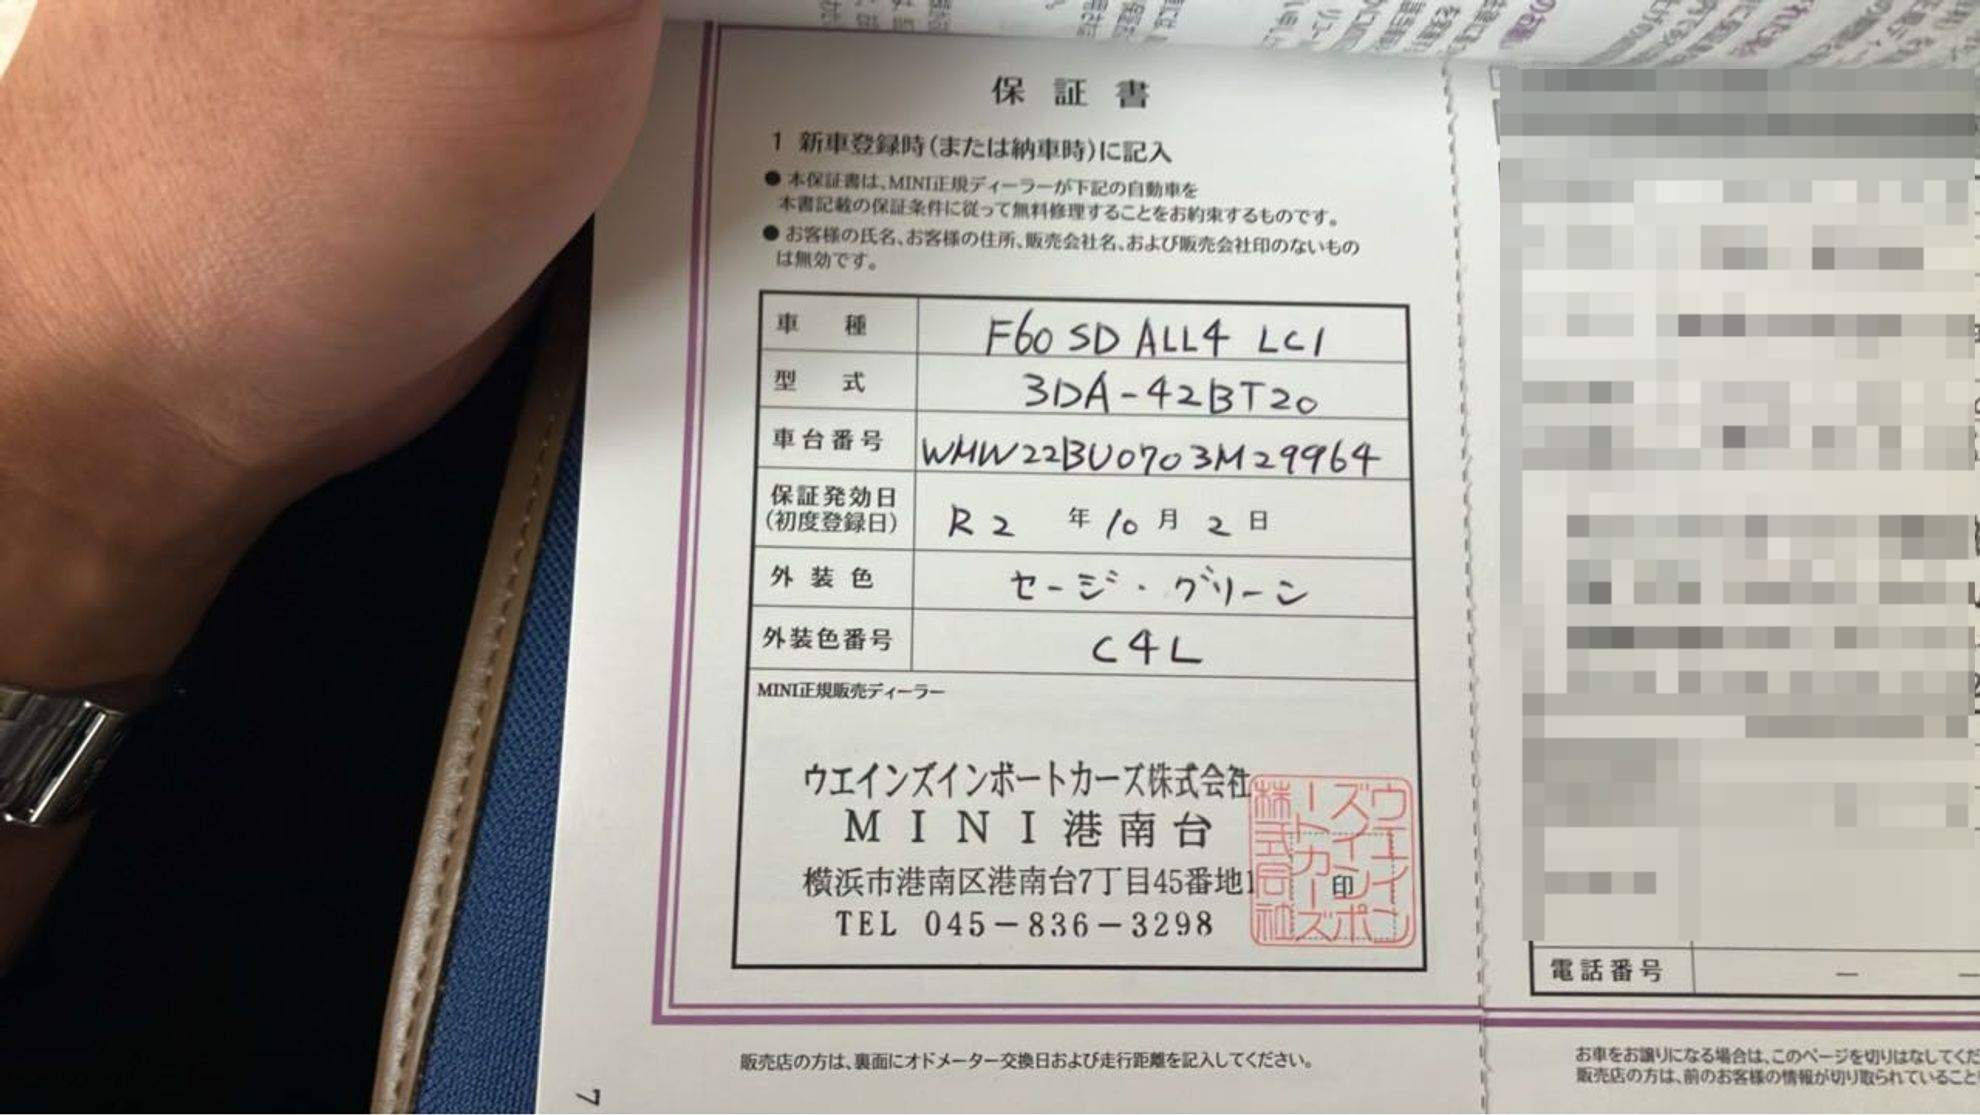 保証書
1 新車登録時(または納車時)に記入
● 本保証書は、MINI正規ディーラーが下記の自動車を
本書記載の保証条件に従って無料修理することをお約束するものです。
● お客様の氏名、お客様の住所、販売会社名、および販売会社印のないもの
は無効です。
車種 F60 SD ALL4 LCI
型式 3DA-42BT20
車台番号 WMW22BU0703M29964
保証発効日
(初度登録日) R2 年 10 月 2 日
外装色 セージ・グリーン
外装色番号 C4L
MINI正規販売ディーラー
ウエインズインポートカーズ株式会社
MINI港南台
横浜市港南区港南台7丁目45番地1
TEL 045-836-3298
ウエインズインポートカーズ株式会社
印
電話番号 — —
販売店の方は、裏面にオドメーター交換日および走行距離を記入してください。
お車をお譲りになる場合は、このページを切りはなしてくだ
販売店の方は、前のお客様の情報が切り取られていること
7